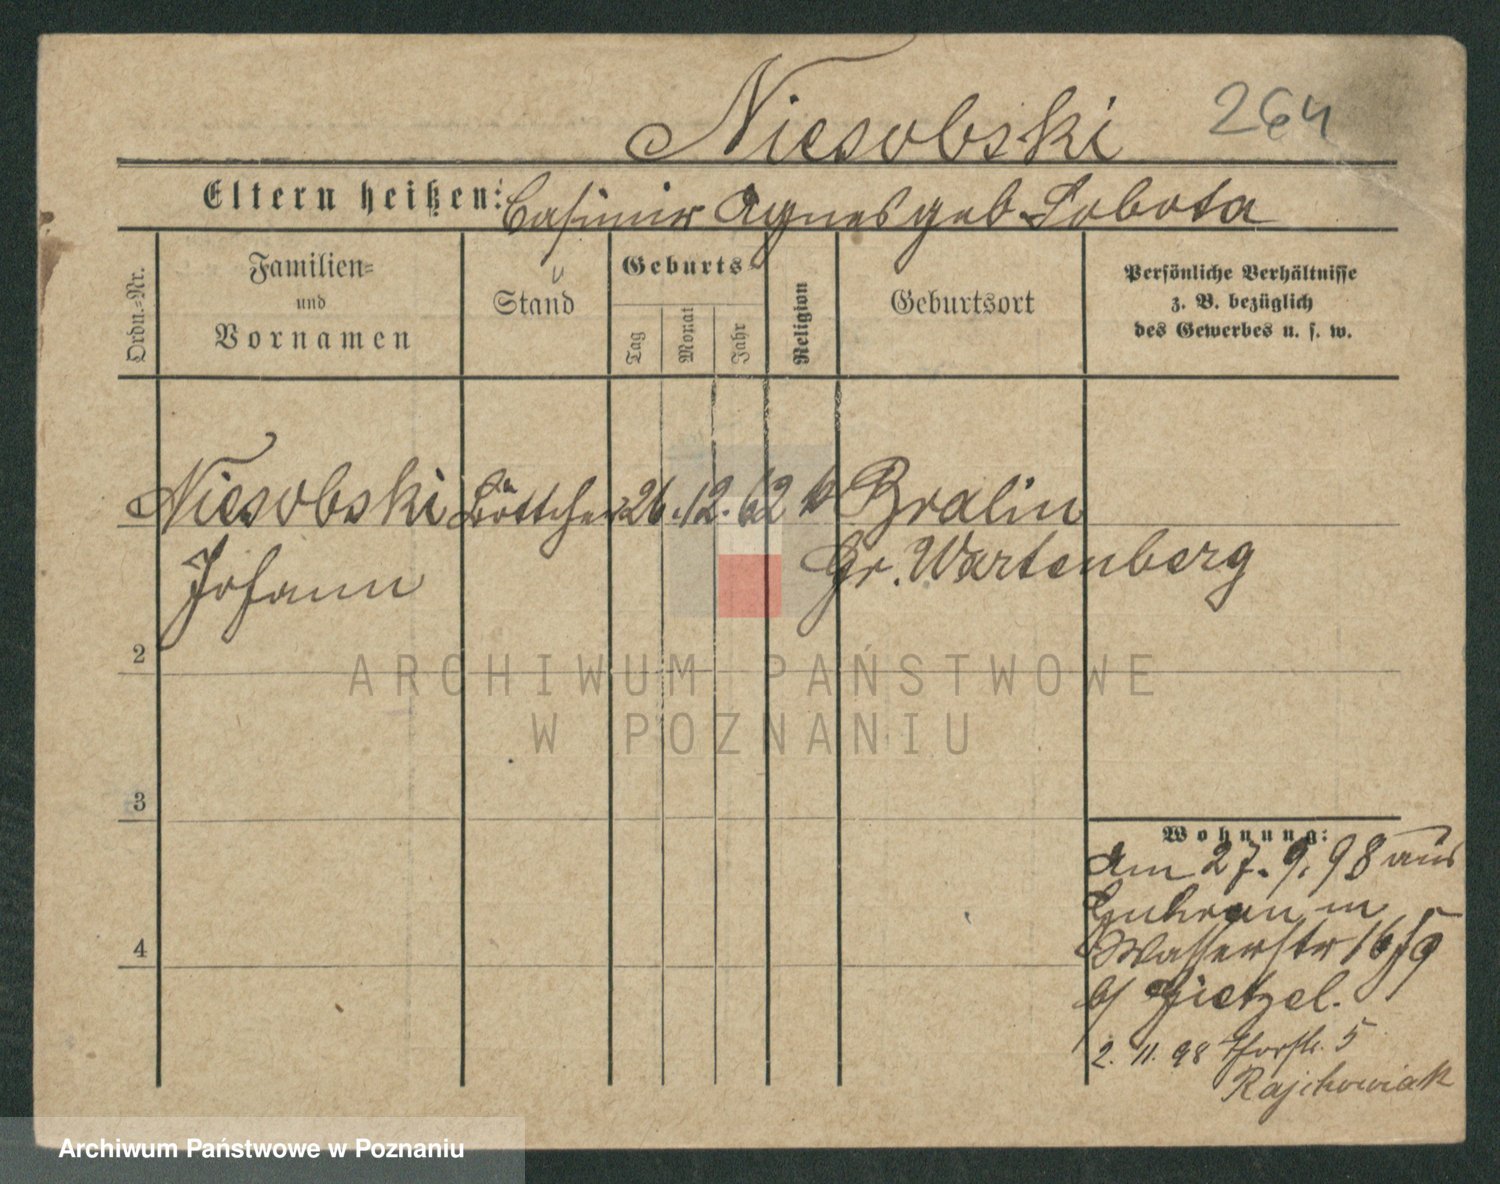 Niesobski 264
Eltern heißen: Casimir Agnes geb. Sobota
Ordn.-Nr.
Familien-
und
Vornamen
Stand
Geburts-
Tag
Monat
Jahr
Religion
Geburtsort
Persönliche Verhältnisse
z. B. bezüglich
des Gewerbes u. s. w.
Niesobski Böttcher 26. 12. 62 k Bralin
Johann Gr. Wartenberg
2
3
4
Wohnung:
Am 27. 9. 98 aus
Guhrau in
Wasserstr 16/9
b/
2. 11. 98 Thorstr. 5
Rajchowiak
ARCHIWUM PAŃSTWOWE
W POZNANIU
Archiwum Państwowe w Poznaniu